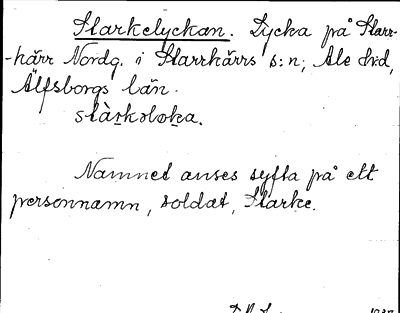 Starkelyckan. Lycka på Starr-
-kärr Nordg. i Starrkärrs s:n, Ale hd,
Älfsborgs län.
Namnet anses syfta på ett
personnamn, soldat, Starke.